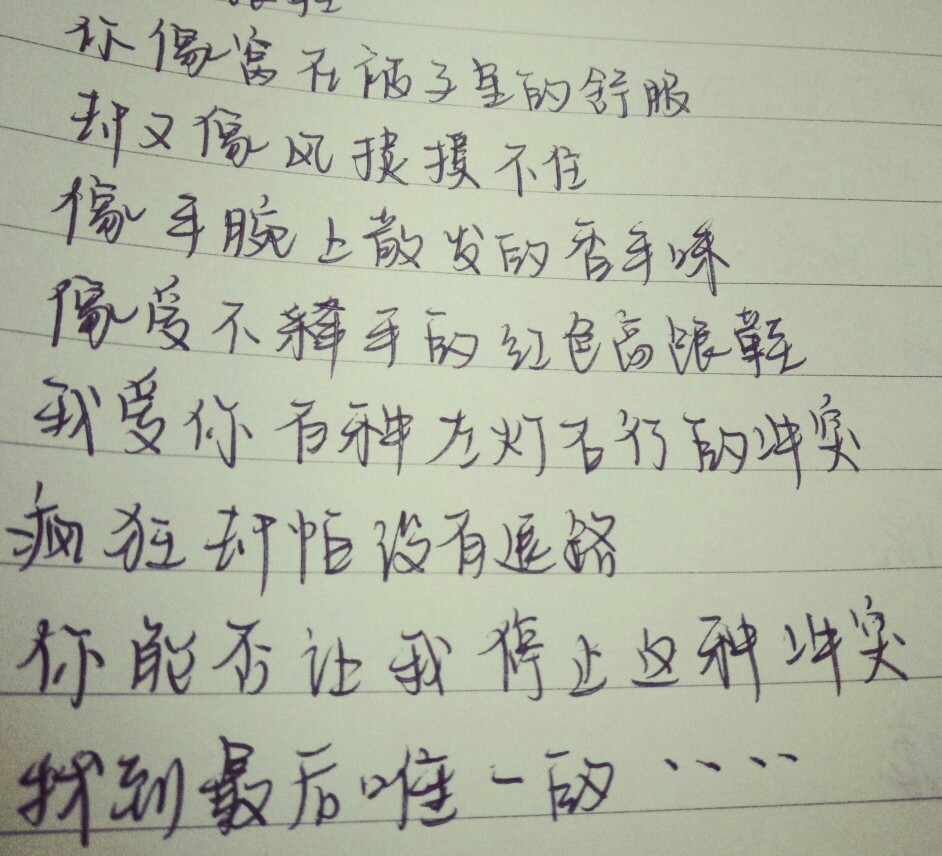 你像窝在被子里的舒服
却又像风捉摸不住
像手腕上散发的香水味
像爱不释手的红色高跟鞋
我爱你有种左灯右行的冲突
疯狂却怕没有退路
你能否让我停止这种冲突
找到最后唯一的····